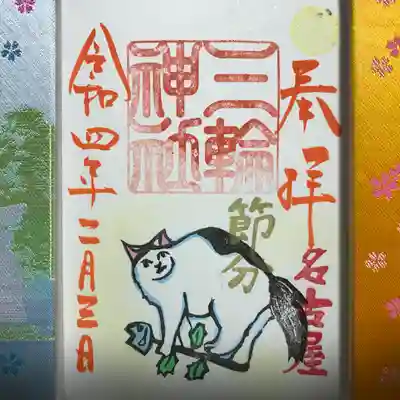 奉拝
三輪神社
節分
名古屋
令和四年二月三日